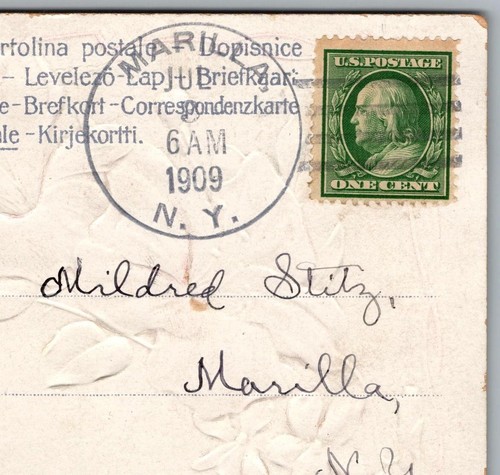 rtolina postale – Dopisnice
– Levelező-Lap – Briefkaart
e – Brefkort – Correspondenzkarte
ale – Kirjekortti.
MARILLA
JUL
6 AM
1909
N. Y.
U.S. POSTAGE
ONE CENT
Mildred Stitz,
Marilla,
N.Y.